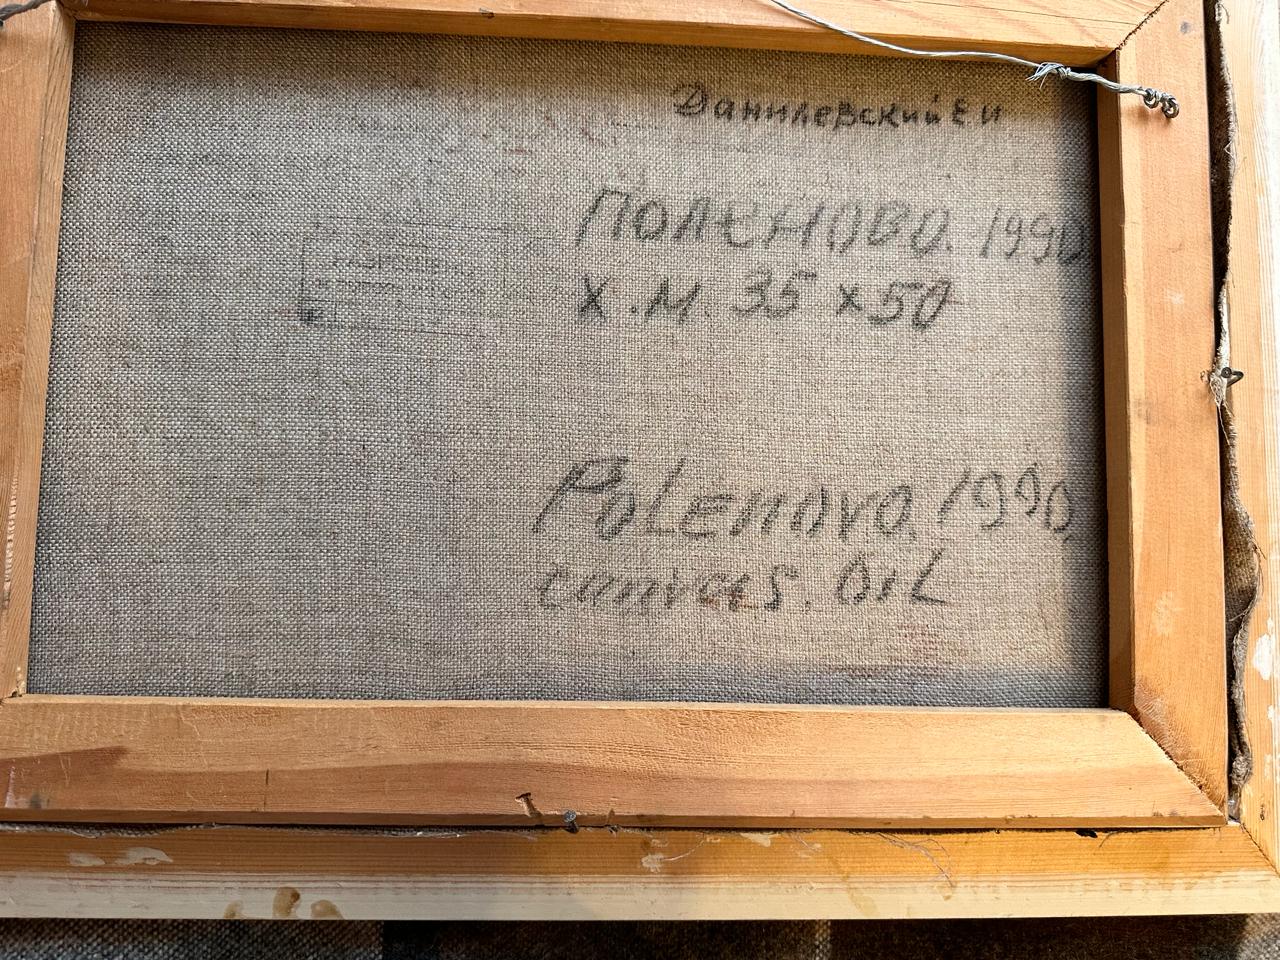 Данилевский Е И
ПОЛЕНОВО. 1990
Х.М. 35 x 50
POLENOVO. 1990.
canvas. OiL